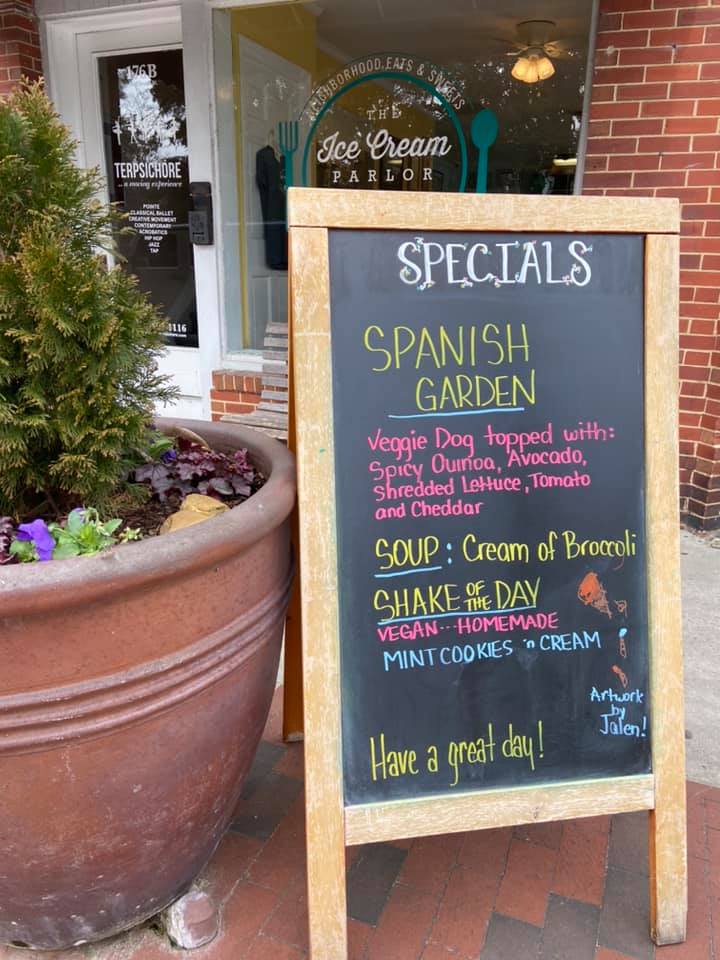 176B
TERPSICHORE
...a moving experience
POINTE
CLASSICAL BALLET
CREATIVE MOVEMENT
CONTEMPORARY
ACROBATICS
HIP HOP
JAZZ
TAP
1116
NEIGHBORHOOD EATS & SWEETS
THE
Ice Cream
PARLOR
SPECIALS
SPANISH
GARDEN
Veggie Dog topped with:
Spicy Quinoa, Avocado,
Shredded Lettuce, Tomato
and Cheddar
SOUP: Cream of Broccoli
SHAKE OF THE DAY
VEGAN---HOMEMADE
MINT COOKIES 'n CREAM
Artwork
by
Jalen!
Have a great day!